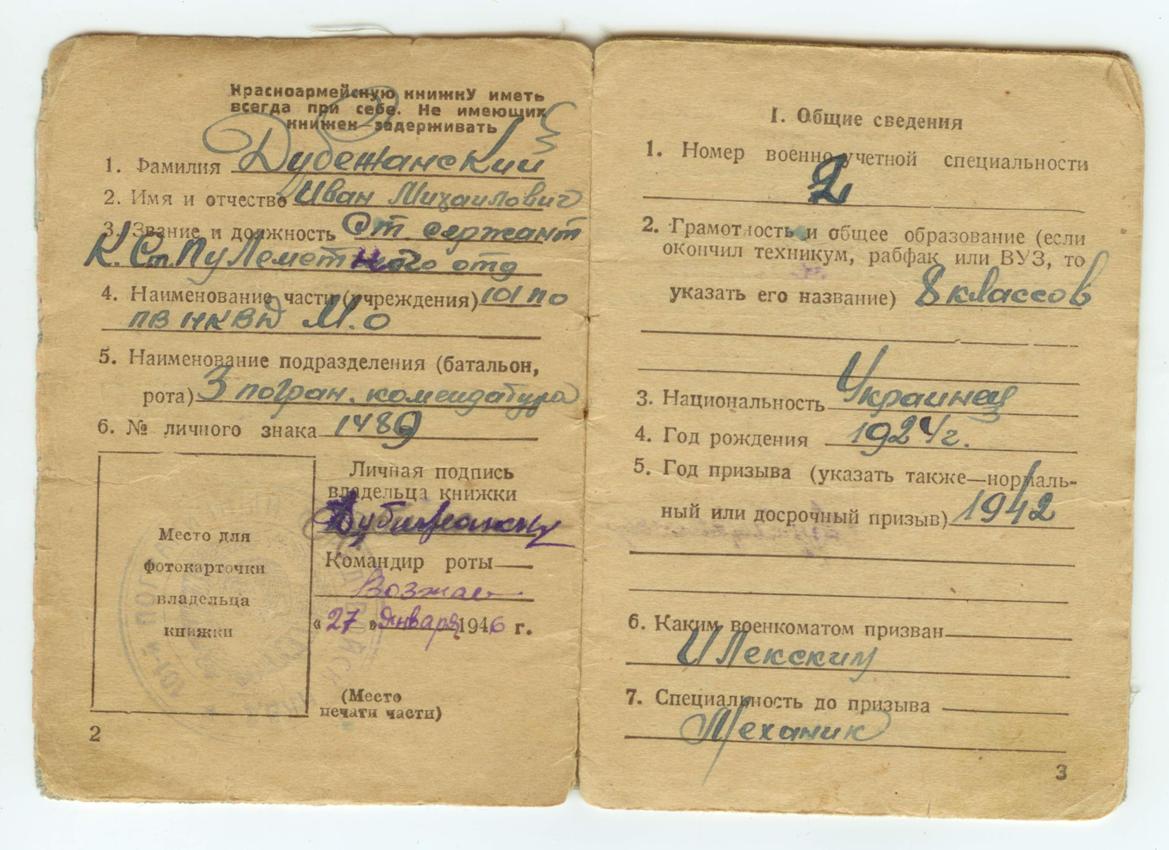 Красноармейскую книжку иметь
всегда при себе. Не имеющих
книжек задерживать
1. Фамилия Дубежанский
2. Имя и отчество Иван Михаилович
3. Звание и должность Ст сержант
К. Ст. Пулеметного отд
4. Наименование части (учреждения) 101 по
ПВ НКВД М.О
5. Наименование подразделения (батальон,
рота) 3 погран. комендатура
6. № личного знака 1489
Место для
фотокарточки
владельца
книжки
Личная подпись
владельца книжки
Командир роты
"27" января 1946 г.
(Место
печати части)
2
I. Общие сведения
1. Номер военно-учетной специальности
2
2. Грамотность и общее образование (если
окончил техникум, рабфак или ВУЗ, то
указать его название) 8 классов
3. Национальность Украинец
4. Год рождения 1924 г.
5. Год призыва (указать также—нормаль-
ный или досрочный призыв) 1942
6. Каким военкоматом призван
Илекским
7. Специальность до призыва
Механик
3